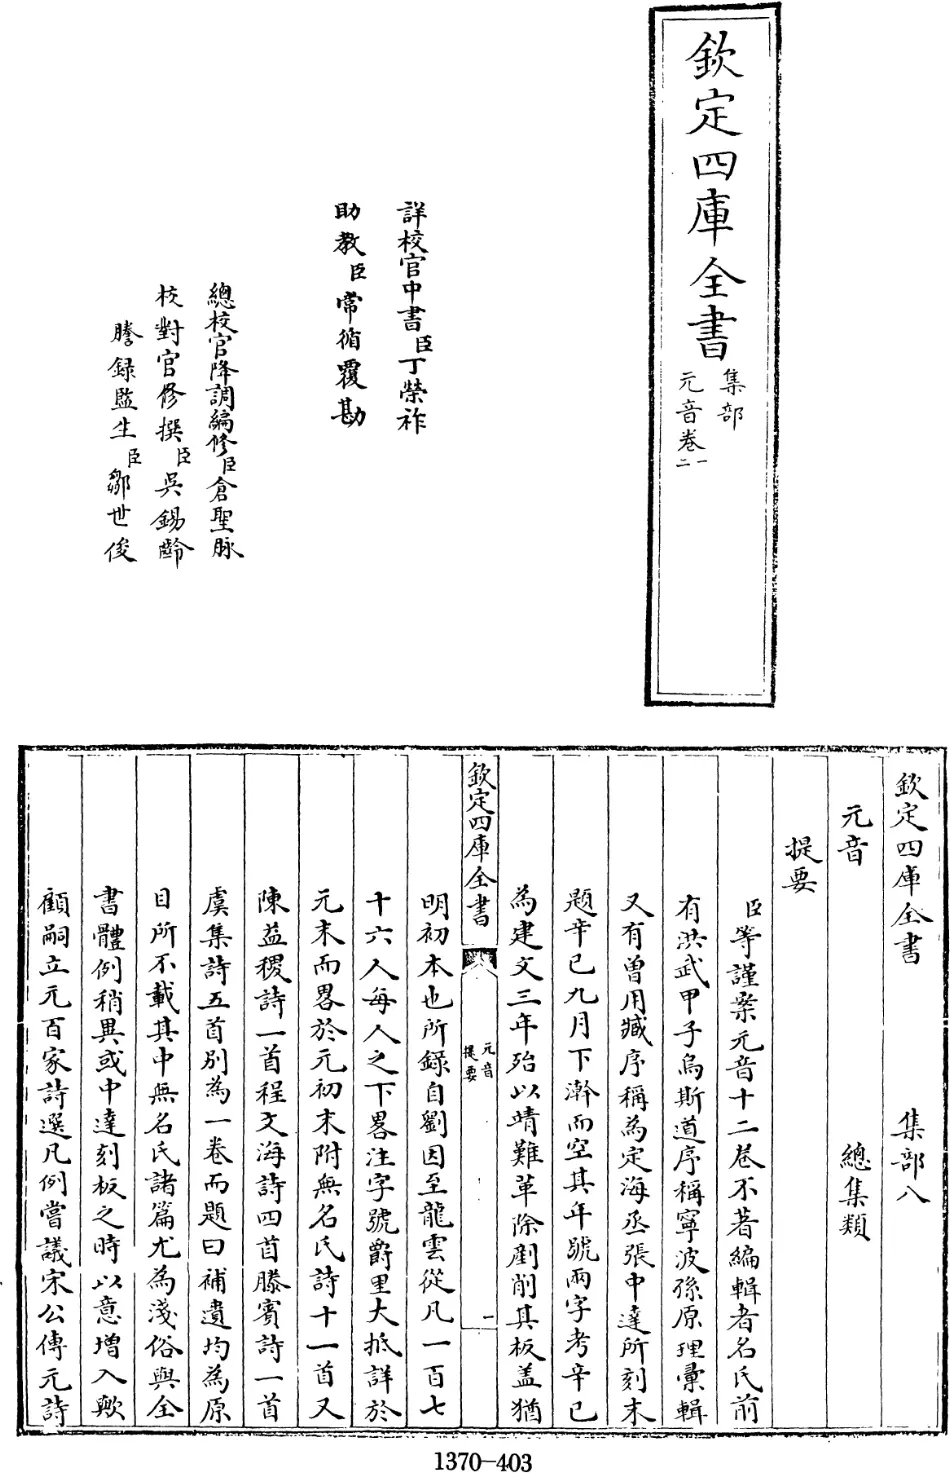 欽定四庫全書
集部
元音卷一
二
詳校官中書臣丁榮祚
助教臣常循覆勘
總校官降調編修臣倉聖脉
校對官修撰臣吳錫齡
謄録監生臣鄒世俊
欽定四庫全書 集部八
元音 總集類
提要
臣等謹案元音十二卷不著編輯者名氏前
有洪武甲子烏斯道序稱寧波孫原理彚輯
又有曾用臧序稱為定海丞張中達所刻末
題辛巳九月下澣而空其年號兩字考辛巳
為建文三年殆以靖難革除剷削其板盖猶
欽定四庫全書
元音
提要
一
明初本也所錄自劉因至龍雲從凡一百七
十六人每人之下畧注字號爵里大抵詳於
元末而畧於元初末附無名氏詩十一首又
陳益稷詩一首程文海詩四首滕賓詩一首
虞集詩五首別為一卷而題曰補遺均為原
目所不載其中無名氏諸篇尤為淺俗與全
書體例稍異或中達刻板之時以意增入歟
顧嗣立元百家詩選凡例嘗議宋公傳元詩
1370-403